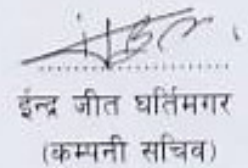 ईन्द्र जीत घर्तिमगर
(कम्पनी सचिव)